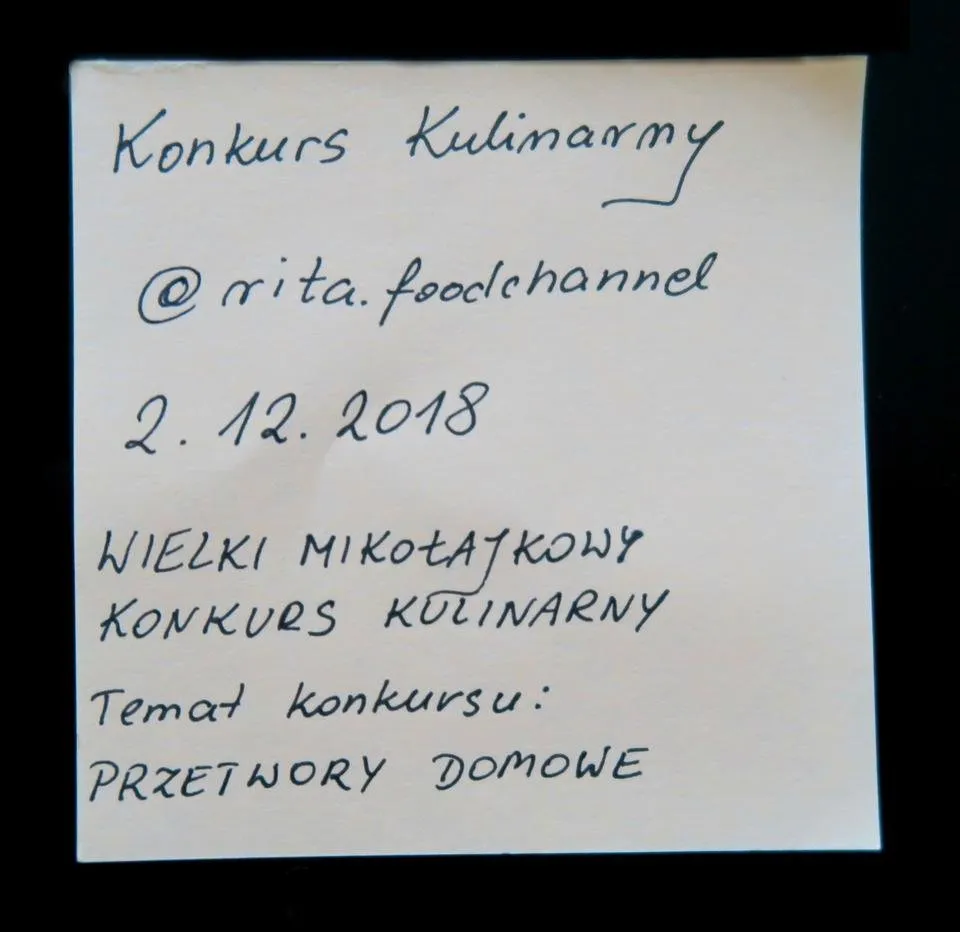 Konkurs Kulinarny
@rita.foodchannel
2.12.2018
WIELKI MIKOŁAJKOWY
KONKURS KULINARNY
Temat konkursu:
PRZETWORY DOMOWE